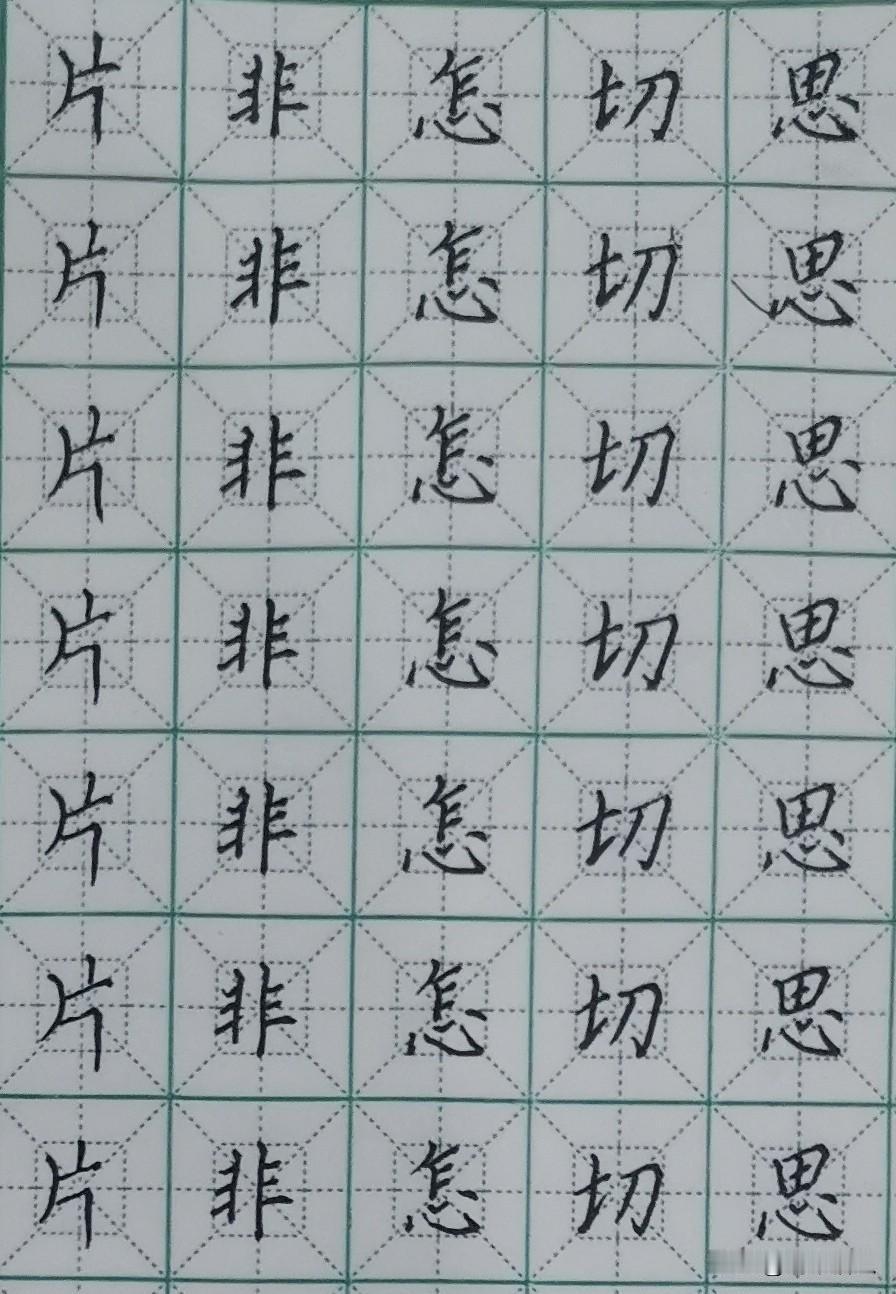 片非怎切思
片非怎切思
片非怎切思
片非怎切思
片非怎切思
片非怎切思
片非怎切思